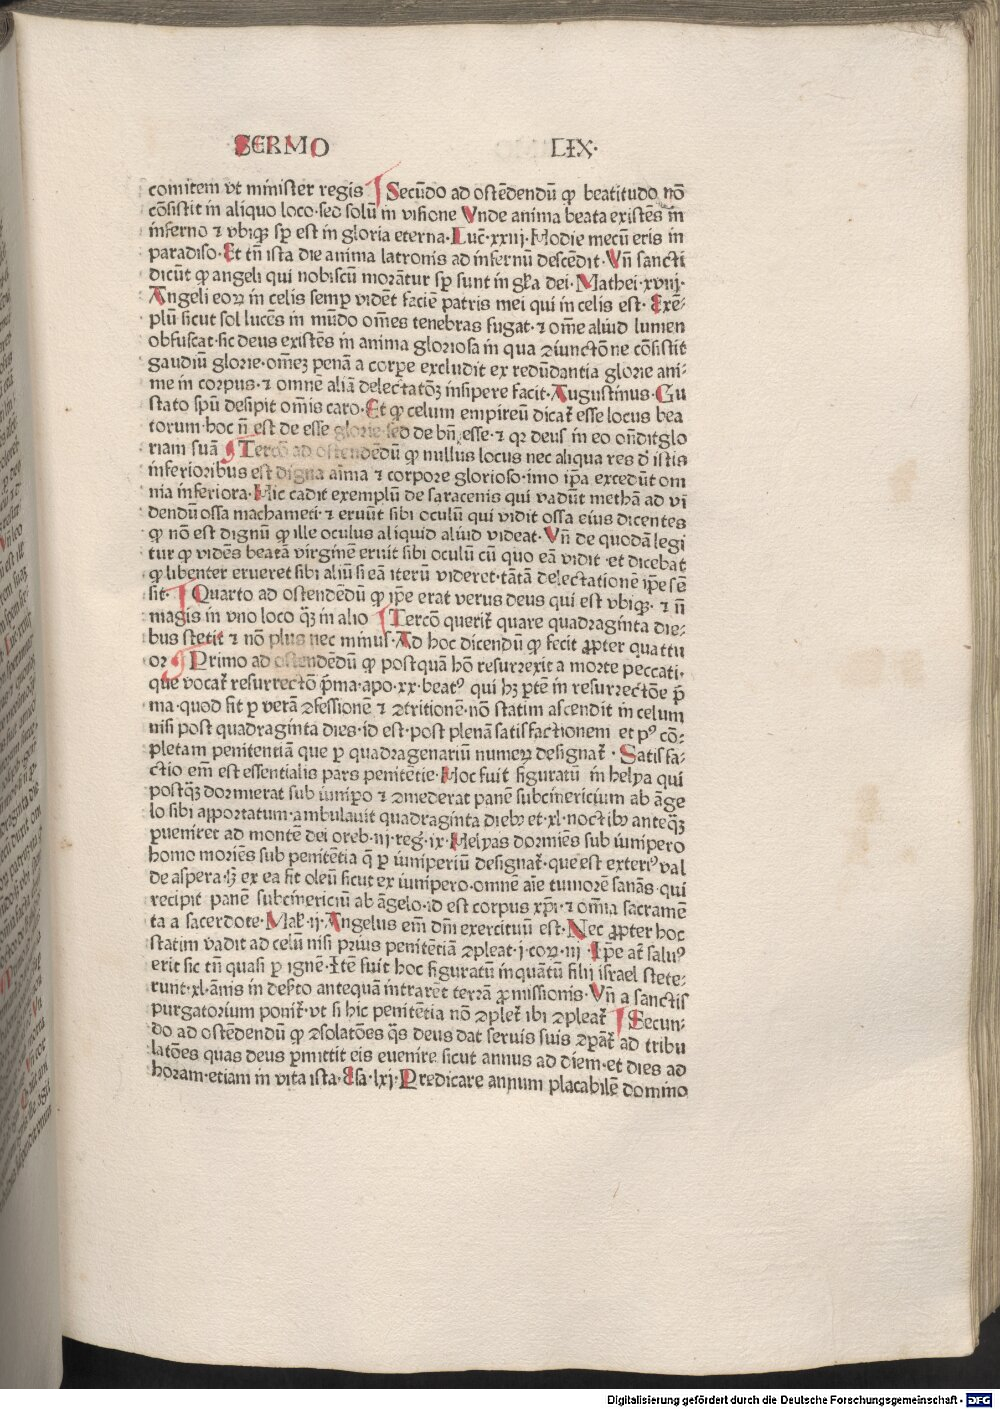 SERMO LIX·
comitem vt minister regis ¶ Secūdo ad ostēdendū ꝙ beatitudo nō
cōsistit in aliquo loco·sed solū in visione Vnde anima beata existēs in
inferno ⁊ vbiqꝫ sꝑ est in gloria eterna·Luc̄·xxiij·Hodie mecū eris in
paradiso·Et tn̄ ista die anima latronis ad infernū descēdit·Vn̄ sancti
dicūt ꝙ angeli qui nobiscū morātur sꝑ sunt in gl̄ia dei·Mathei·xviij·
Angeli eoꝝ in celis semꝑ vidēt faciē patris mei qui in celis est· Exē-
plū sicut sol lucēs in mūdo om̄es tenebras fugat·⁊ om̄e aliud lumen
obfuscat·sic deus existēs in anima gloriosa in qua ꝯiunctōne cōsistit
gaudiū glorie·om̄eꝫ penā a corꝑe excludit ex redūdantia glorie ani-
me in corpus·⁊ omnē aliā delectatōꝫ insipere facit·Augustinus·Gu
stato spū desipit om̄is caro·Et ꝙ celum empireū dicat᷑ esse locus bea
torum·hoc n̄ est de esse glorie·sed de bn̄ esse·⁊ qꝛ deus in eo on̄dit glo
riam suā ¶ Tercō ad ostendēdū ꝙ nullus locus nec aliqua res d̄ istis
inferioribus est digna aīma ⁊ corpore glorioso·imo ip̄a excedūt om
nia inferiora·Hic cadit exemplū de saracenis qui vadūt methā ad vi
dendū ossa machameti·⁊ eruūt sibi oculū qui vidit ossa eius dicentes
ꝙ nō est dignū ꝙ ille oculus aliquid aliud videat·Vn̄ de quodā legi
tur ꝙ vidēs beatā virginē eruit sibi oculū cū quo eā vidit·et dicebat
ꝙ libenter erueret sibi aliū si eā iterū videret·tātā delectationē ip̄e sē
sit· ¶ Quarto ad ostendēdū ꝙ ip̄e erat verus deus qui est vbiqꝫ· ⁊ n̄
magis in vno loco qꝫ̄ in alio ¶ Tercō querit᷑ quare quadraginta die-
bus stetit ⁊ nō plus nec minus·Ad hoc dicendū ꝙ fecit ꝓpter quattu
or ¶ Primo ad ostendēdū ꝙ postquā hō resurrexit a morte peccati·
que vocat᷑ resurrectō p̄ma·apo·xx·beatꝰ qui hꝫ ꝑtē in resurrectōe p̄
ma·quod fit ꝑ verā ꝯfessionē ⁊ ꝯtritionē·nō statim ascendit in celum
nisi post quadraginta dies·id est·post plenā satisfactionem et pꝰ cō-
pletam penitentiā que ꝑ quadragenariū numeꝝ designat᷑ · Satisfa-
ctio em̄ est essentialis pars penitētie·Hoc fuit figuratū in helya qui
postqꝫ̄ dormierat sub iunipo ⁊ ꝯmederat panē subcinericium ab āge
lo sibi apportatum·ambulauit quadraginta diebꝫ et·xl·noctibꝫ anteqꝫ̄
ꝑueniret ad montē dei oreb·iij·reg·ix·Helyas dormiēs sub iunipero
homo moriēs sub penitētia q̄ ꝑ iuniperiū designat᷑·que est exteriꝰ val
de aspera·lꝫ ex ea fit oleū sicut ex iunipero·omnē aīe tumorē sanās·qui
recipit panē subcinericiū ab āgelo·id est corpus xp̄i·⁊ om̄ia sacramē
ta a sacerdote·Mal·ij·Angelus em̄ dn̄i exercituū est·Nec ꝓpter hoc
statim vadit ad celū nisi prius penitētiā ꝯpleat·j·coꝝ·iij·Ip̄e at᷑ saluꝰ
erit sic tn̄ quasi ꝑ ignē·Itē fuit hoc figuratū inquātū filij israel stete-
runt·xl·ānis in deẜto antequā intrarēt terrā ꝓmissionis·Vn̄ a sanctis
purgatorium ponit᷑·vt si hic penitētia nō ꝯplet᷑ ibi ꝯpleat᷑ ¶ Secun-
do ad ostēdendū ꝙ ꝯsolatōes qꝫ̄s deus dat seruis suis ꝯꝑāt᷑ ad tribu
latōes quas deus ꝑmittit eis euenire sicut annus ad diem·et dies ad
horam·etiam in vita ista·Esa·lxj·Predicare annum placabilē domino
Digitalisierung gefördert durch die Deutsche Forschungsgemeinschaft · DFG